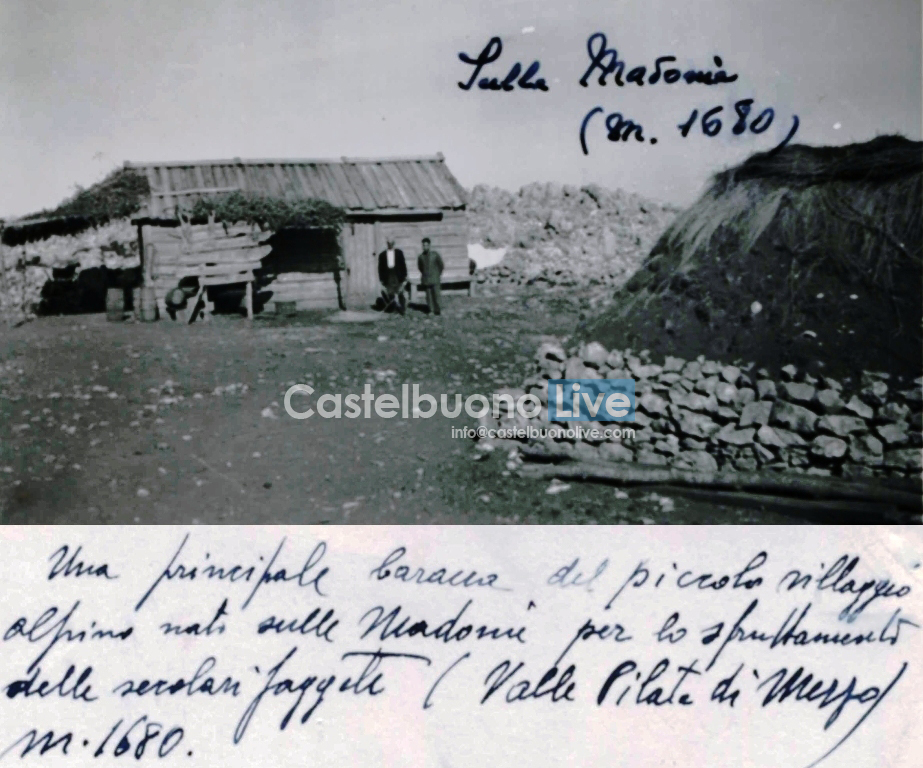 Sulle Madonie
(m. 1680)
Castelbuono Live
info@castelbuonolive.com
Una principale baracca del piccolo villaggio
alpino nato sulle Madonie per lo sfruttamento
delle secolari faggete (Valle Pilata di Mezzo)
m. 1680.